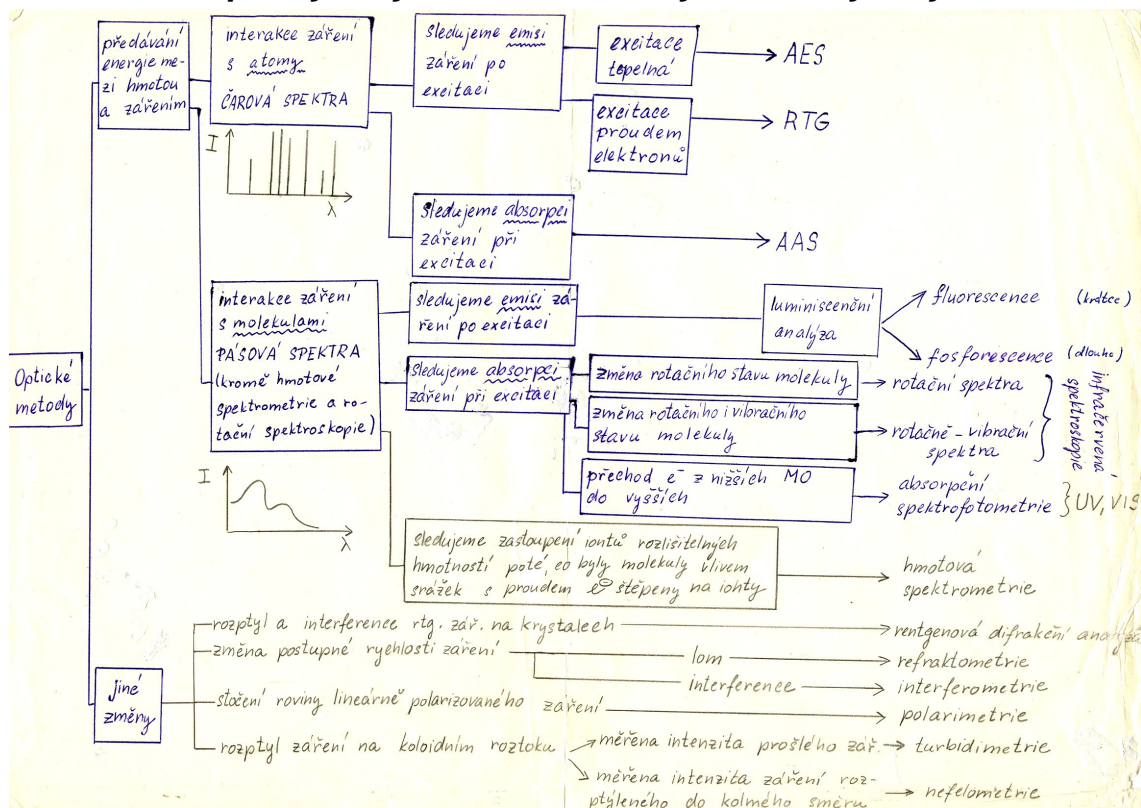 Optické
metody
předávání
energie me-
zi hmotou
a zářením
interakce záření
s atomy
ČAROVÁ SPEKTRA
I
λ
sledujeme emisi
záření po
excitaci
excitace
tepelná
AES
excitace
proudem
elektronů
RTG
sledujeme absorpci
záření při
excitaci
AAS
interakce záření
s molekulami
PÁSOVÁ SPEKTRA
(kromě hmotové
spektrometrie a ro-
tační spektroskopie)
I
λ
sledujeme emisi zá-
ření po excitaci
luminiscenční
analýza
fluorescence (krátce)
fosforescence (dlouho)
sledujeme absorpci
záření při excitaci
změna rotačního stavu molekuly
rotační spektra
změna rotačního i vibračního
stavu molekuly
rotačně - vibrační
spektra
infračervená
spektroskopie
přechod e⁻ z nižších MO
do vyšších
absorpční
spektrofotometrie
UV, VIS
sledujeme zastoupení iontů rozlišitelných
hmotností poté, co byly molekuly vlivem
srážek s proudem e⊖ štěpeny na ionty
hmotová
spektrometrie
jiné
změny
rozptyl a interference rtg. zář. na krystalech
rentgenová difrakční analýza
změna postupné rychlosti záření
lom
refraktometrie
interference
interferometrie
stočení roviny lineárně polarizovaného záření
polarimetrie
rozptyl záření na koloidním roztoku
měřena intenzita prošlého zář.
turbidimetrie
měřena intenzita záření roz-
ptýleného do kolmého směru
nefelometrie